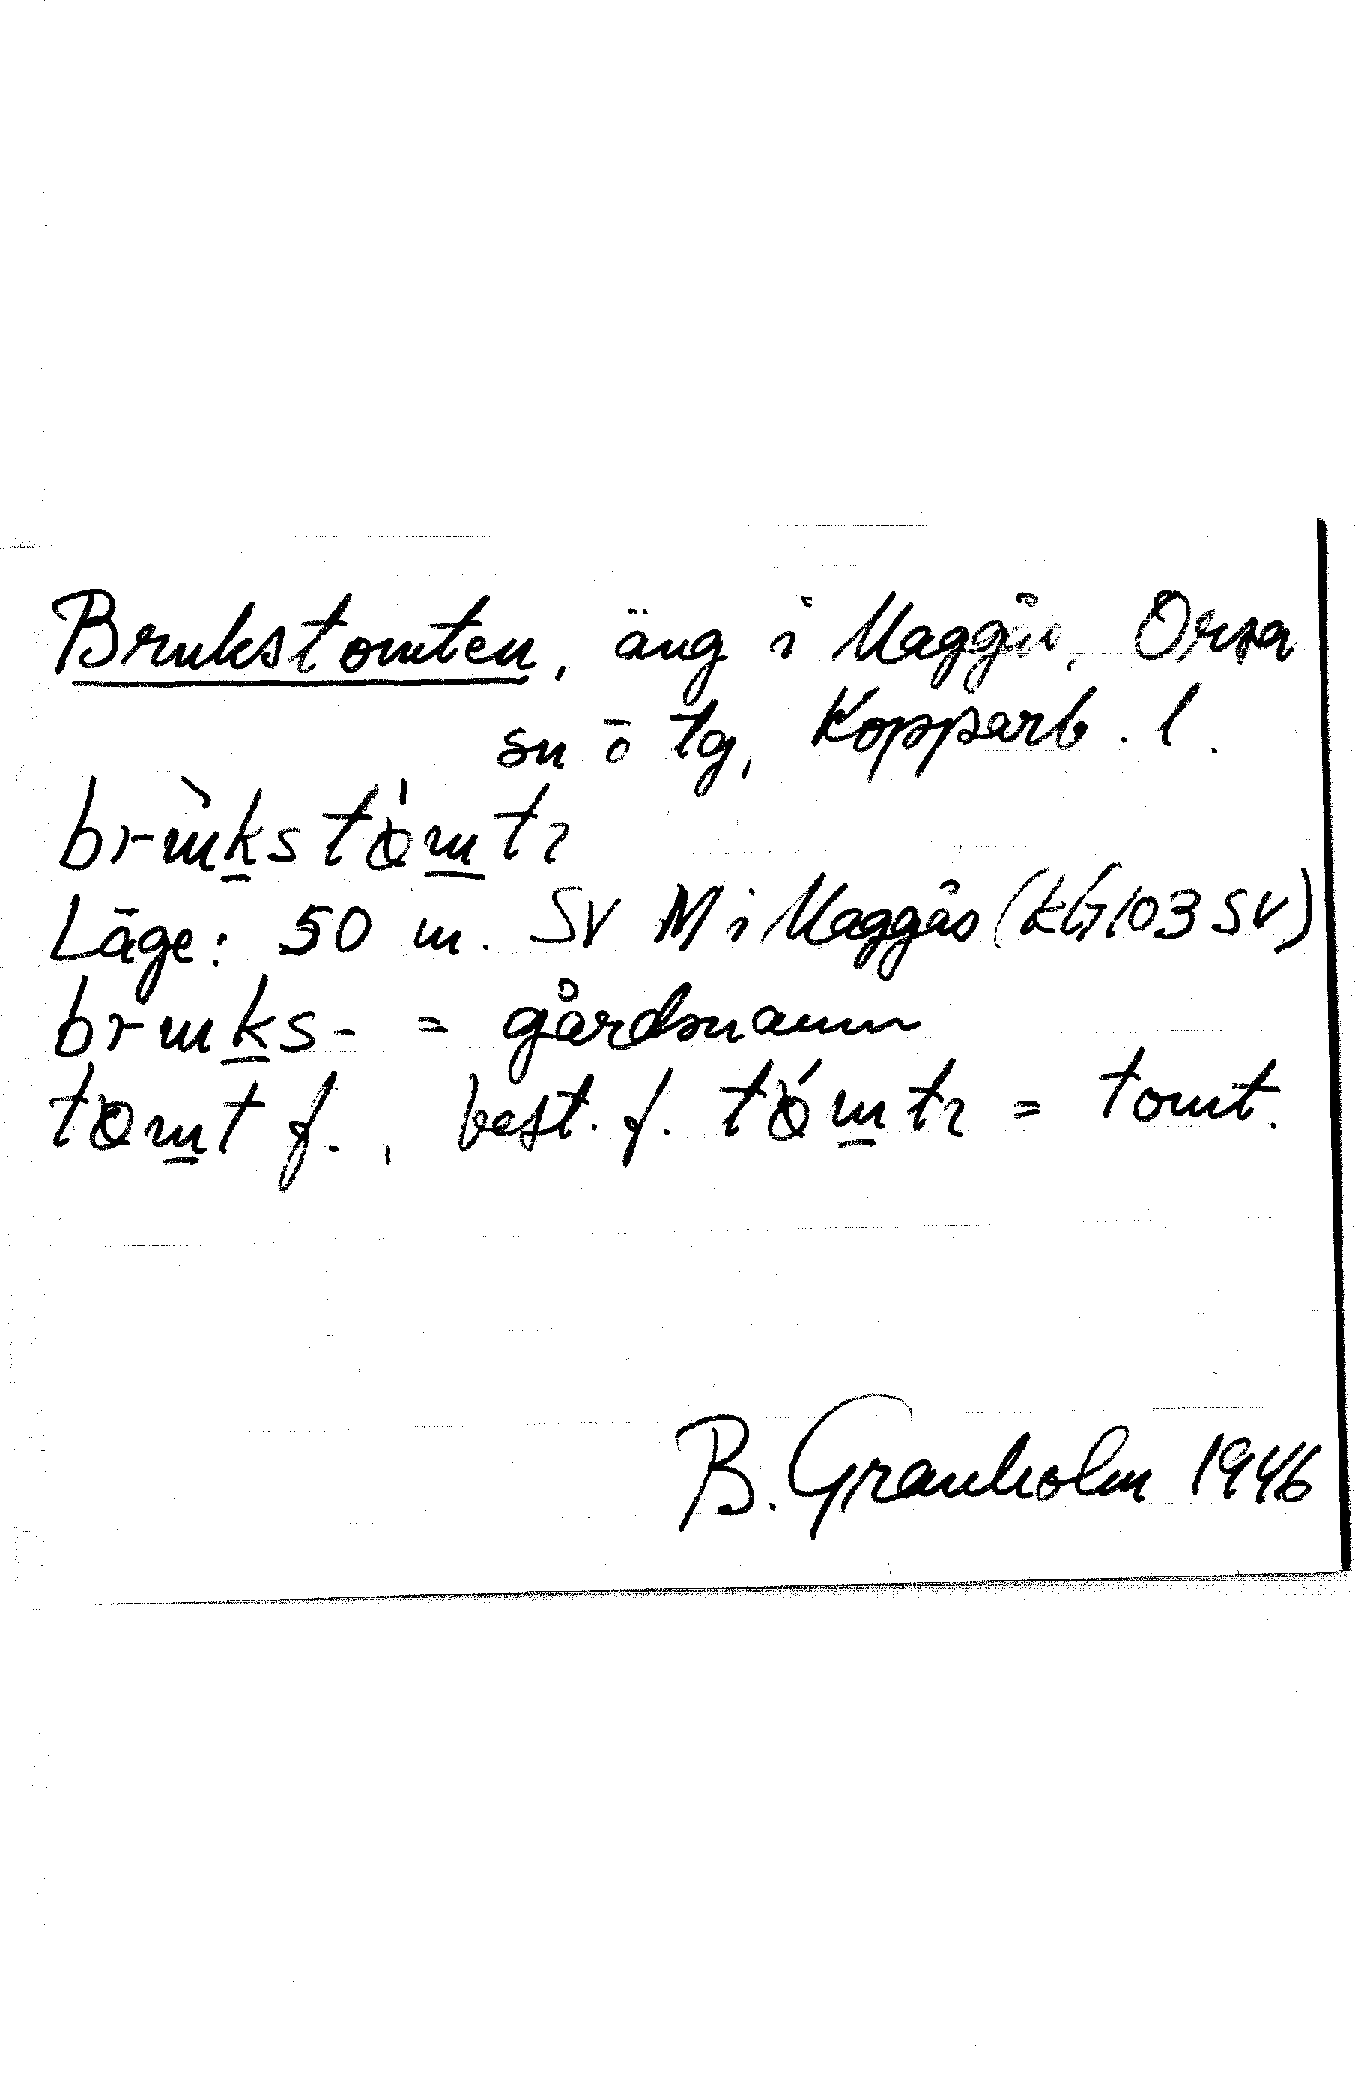 Brukstomten, äng i Maggås, Orsa
sn o tg, Kopparb. l.
brùkstǫ̀mtı
Läge: 50 m. SV M i Maggås (kG103SV)
bruks- = gårdsnamn
tǫmt f., best. f. tǫ́mtı = tomt.
B. Granholm 1946